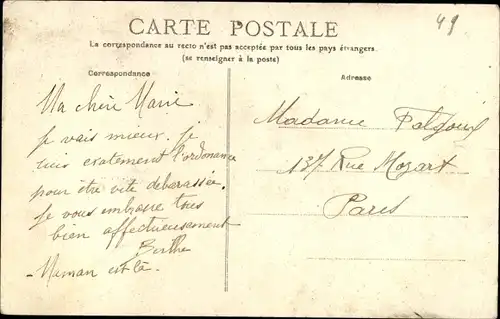 CARTE POSTALE
49
La correspondance au recto n'est pas acceptée par tous les pays étrangers.
(se renseigner à la poste)
Correspondance
Adresse
Ma chère Marie
Je vais mieux. Je
suis exatement l'ordonance
pour être vite debarassée.
Je vous embrasse tous
bien affectueusement
Berthe
- Maman est là.
Madame
137 Rue Mozart
Paris